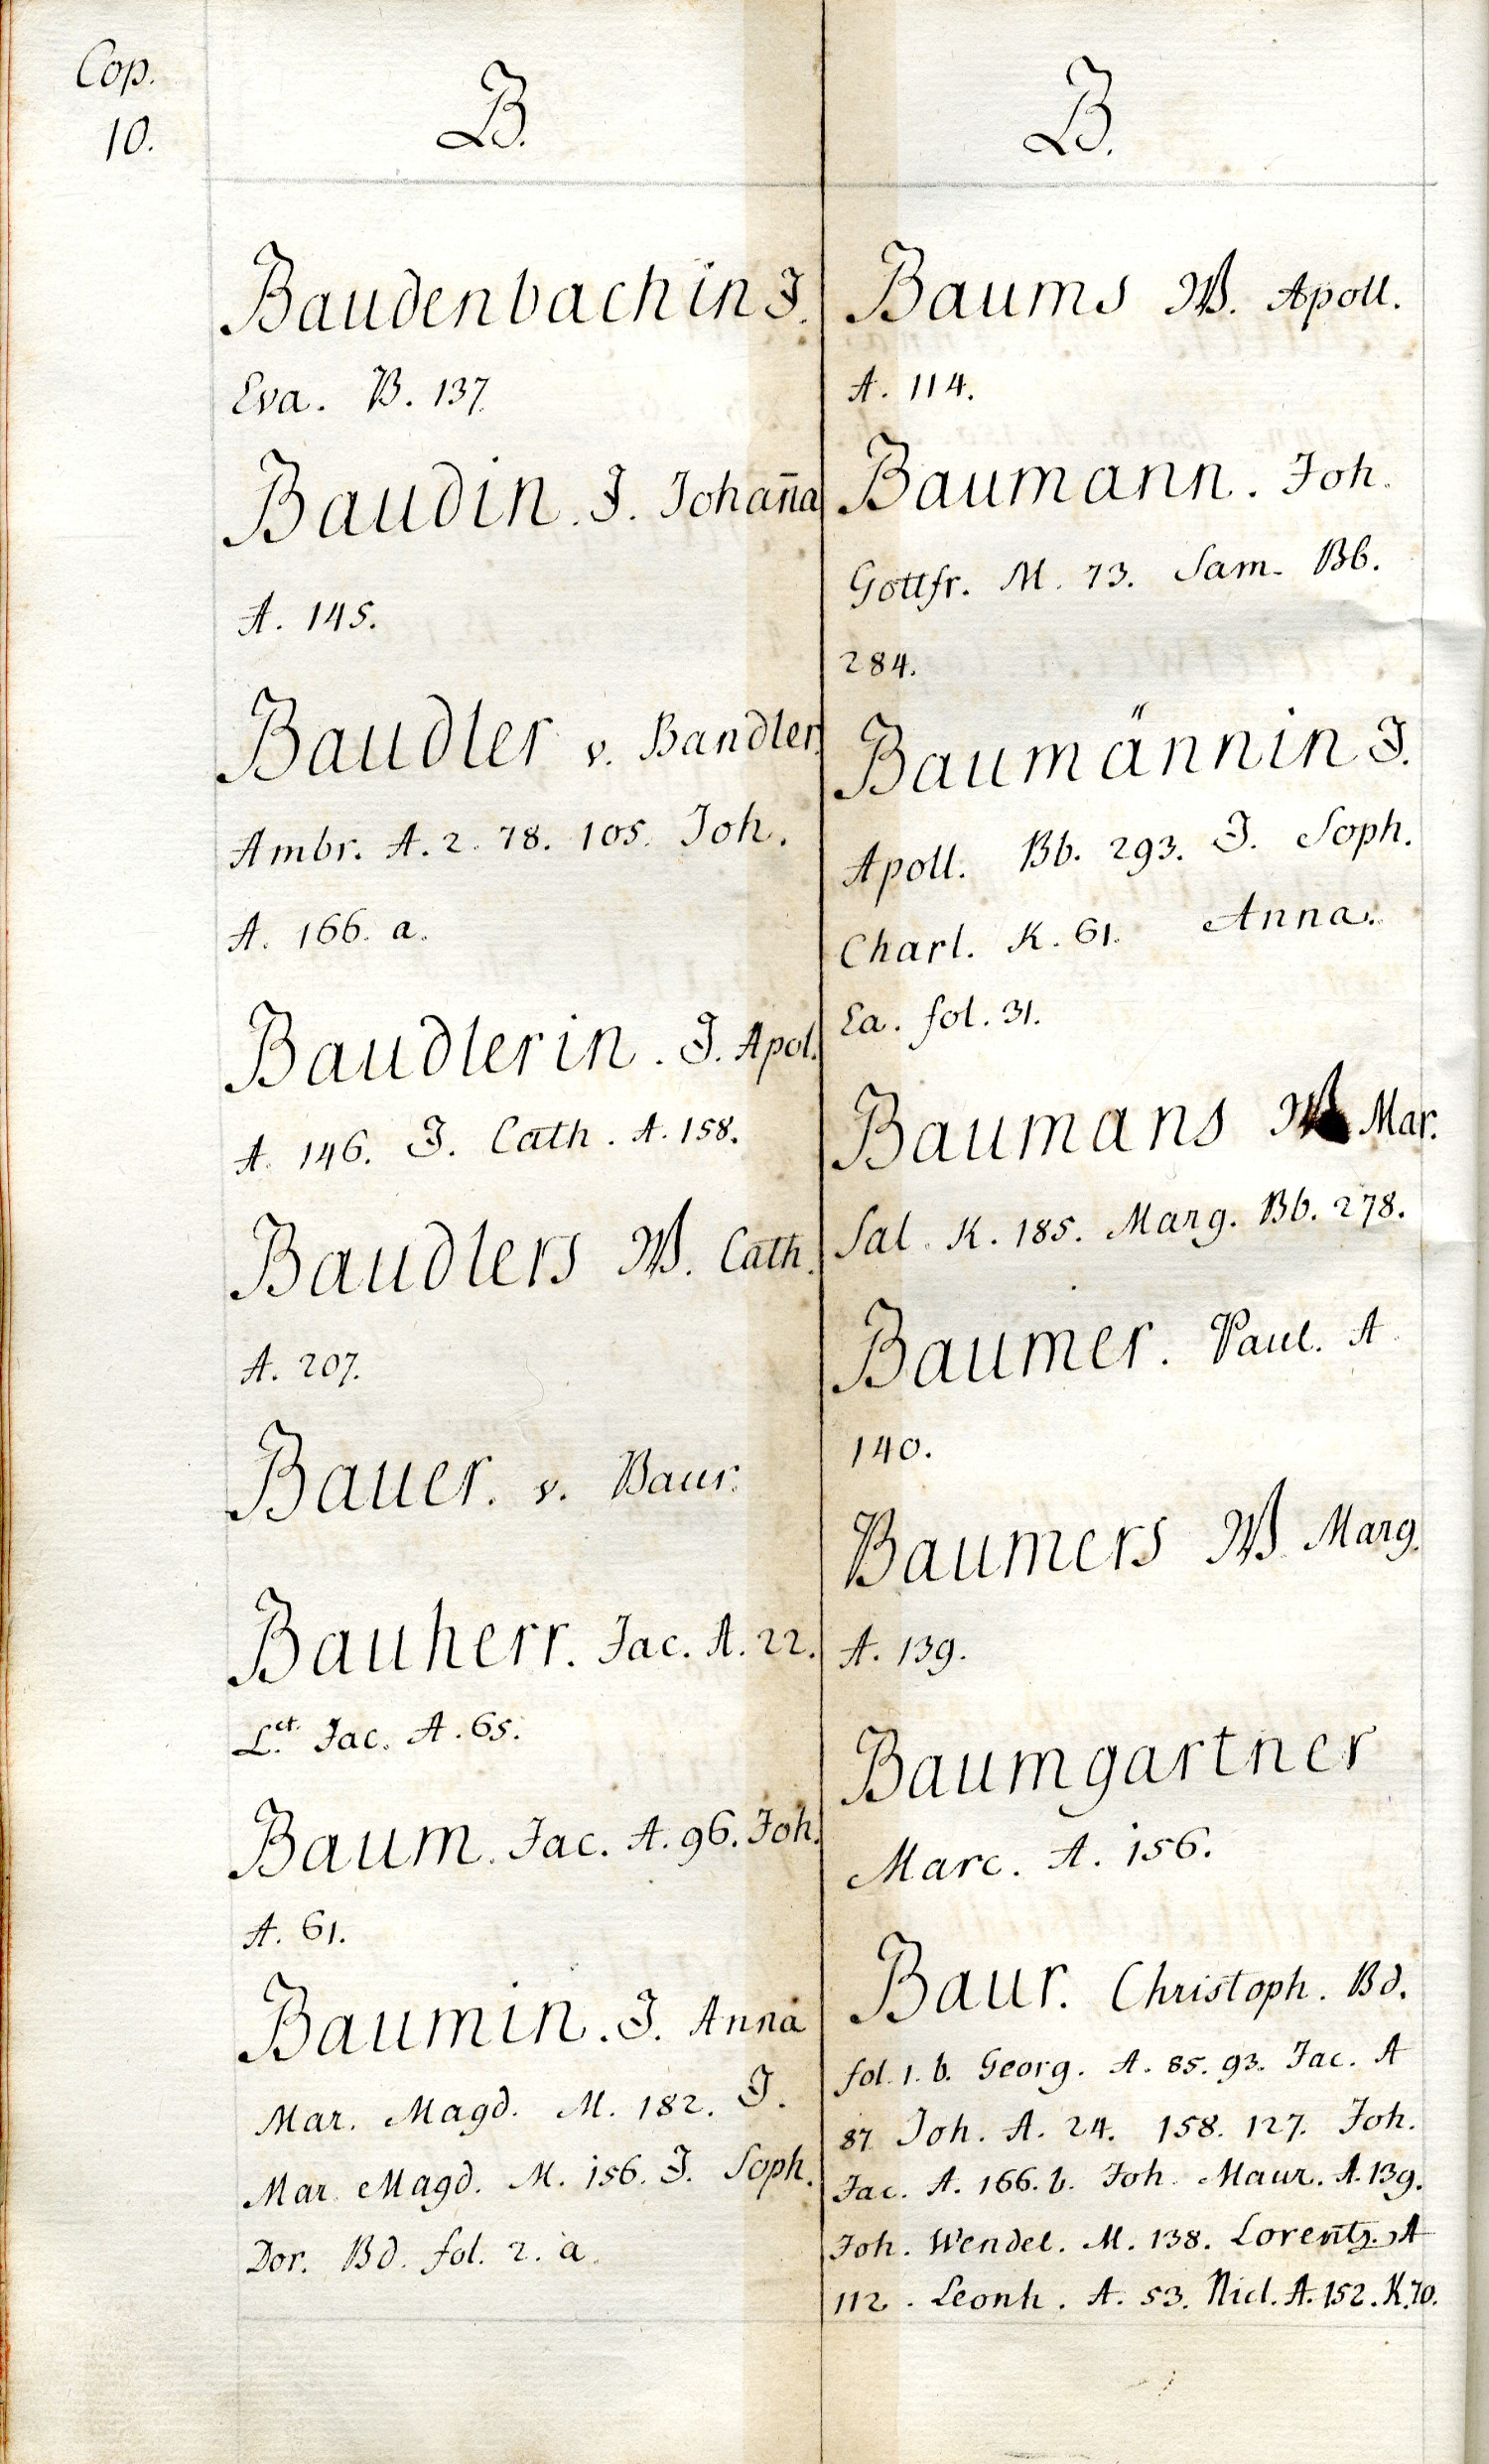 Cop.
10.
B.
Baudenbachin J.
Eva. B. 137.
Baudin. J. Johan̄a
A. 145.
Baudler v. Bandler.
Ambr. A. 2. 78. 105. Joh.
A. 166. a.
Baudlerin. J. Apol.
A. 146. J. Cath. A. 158.
Baudlers W. Cath.
A. 207.
Bauer. v. Baur.
Bauherr. Jac. A. 22.
L.ct. Jac. A. 65.
Baum. Jac. A. 96. Joh.
A. 61.
Baumin. J. Anna
Mar. Magd. M. 182. J.
Mar. Magd. M. 156. J. Soph.
Dor. Bd. fol. 2. a.
B.
Baums W. Apoll.
A. 114.
Baumann. Joh.
Gottfr. M. 73. Sam. Bb.
284.
Baumännin J.
Apoll. Bb. 293. J. Soph.
Charl. K. 61. Anna.
Ea. fol. 31.
Baumans W Mar.
Sal. K. 185. Marg. Bb. 278.
Baumer. Paul. A.
140.
Baumers W. Marg.
A. 139.
Baumgartner
Marc. A. 156.
Baur. Christoph. Bd.
fol. 1. b. Georg. A. 85. 93. Jac. A
87. Joh. A. 24. 158. 127. Joh.
Jac. A. 166. b. Joh. Maur. A. 139.
Joh. Wendel. M. 138. Lorentz. A
112. Leonh. A. 53. Nicl. A. 152. K. 70.